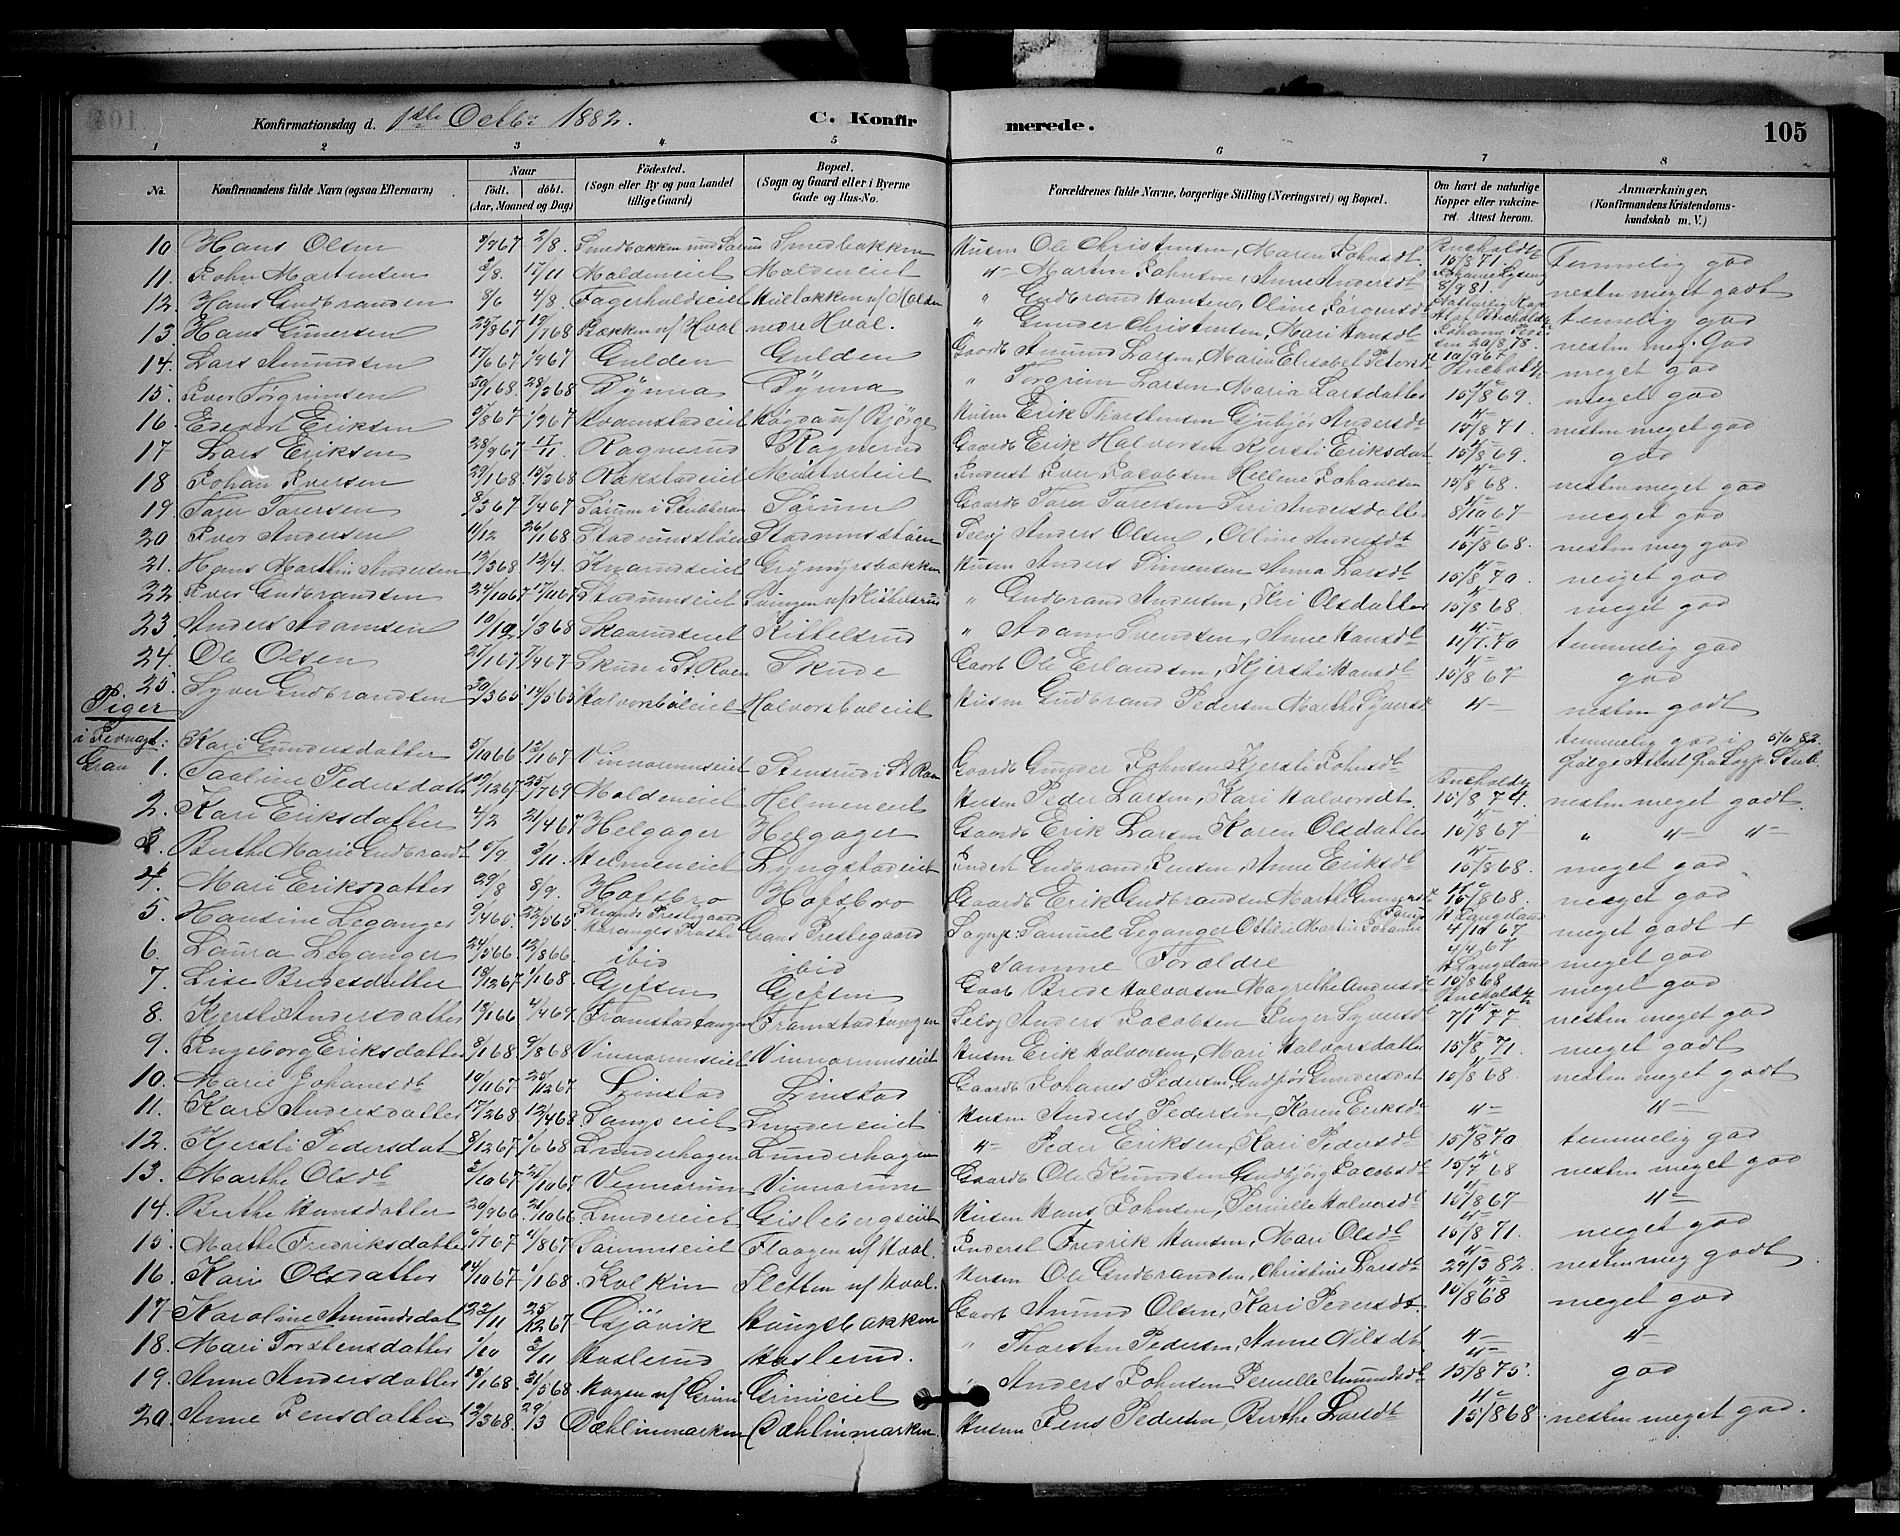 Konfirmationsdag d. 1ste Octbr 1882. C. Konfirmerede. 105
1 2 3 4 5 6 7 8
No. Konfirmandens fulde Navn (ogsaa Efternavn) Naar født. døbt. (Aar, Maaned og Dag) Fødested. (Sogn eller By og paa Landet tillige Gaard) Bopæl. (Sogn og Gaard eller i Byerne Gade og Hus-No. Forældrenes fulde Navne, borgerlige Stilling (Næringsvei) og Bopæl. Om havt de naturlige Kopper eller vakcineret. Attest herom. Anmærkninger, (Konfirmandens Kristendomskundskab m. V.)
10 Hans Olsen 8/7 67 2/8. Smedbakken Smedbakken Husm Ole Christensen, Maren Johnsdt. 15/8 71. Temmelig god
11. John Martensen 3/8. 17/11 Moldeneiet Moldeneiet " Marten Johnsen, Anne Andersdt 8/9 81. nesten meget godt
12. Hans Gudbrandsen 8/6 4/8. Fagerholdseiet Hulbakken u/ Molden " Gudbrand Hansen, Oline temmelig god
13. Hans Gunersen 25/8 67 19/7 68 Bakken u/ Hval nedre Hval. " Gunder Christensen, Mari Hansdt. 20/8 78. nesten meg. God
14. Lars Amundsen 17/6 67 Gulden Gulden Gaardb Amund Larsen, Maren Elisabet 10/9 67 meget god
15. Iver Torgrimsen 30/1 68. 28/3 68 Dynna Dynna " Torgrim Larsen Maria Larsdatter 15/8 69. meget god
16. Edvert Eriksen 67 67 Kvamstadeiet Høgda u/ Bjørge Husm Erik Thorstensen Andersdt 15/8 71. nesten meget god
17 Lars Eriksen 28/9 67 1/11. Ragnerud Ragnerud Gaardb Erik Halvorsen Kjersti Eriksdat 15/8 69. god
18 Johan Iversen 29/1 68. 15/3 68 Rakstadeiet Inderst Iver Jacobsen Hellene Johansen 15/8 68. nesten meget god
19. Tarer Tarersen 8/3 67 67 Sørum i Sørum Gaardb Tarer Tarersen Siri Andersdatter 8/10 67 meget god
20 Iver Andersen 11/12 26/1 68 Stadumsstøen Stadumsstøen Selvj Anders Olsen, Olline Andersdt 15/8 68. nesten meg god
21. Hans Marthin Andersen 12/3 68 12/4. Knarudseiet Grymyrsbækken Husm Anders Simensen Anna Larsdt 15/8 70. meget god
22 Iver Gudbrandsen 24/10 67 17/11 67 Stadumseiet " Gudbrand Andersen, Kri Olsdatter 15/8 68. meget god
23. Anders Adamsen 10/12 1/3 68 Skaarudseiet Kittelsrud " Adam Svendsen, Anne Hansdt 11/7. 70 temmelig god
24. Ole Olsen 27/1 67 67. Skude i St. Roen Skude Gaardb Ole Erlandsen, Kjersti Hansdt 15/8 67 god
25. Syver Gudbrandsen 30/3 65 14/5 65 Halvorsbøleiet Halvorsbøleiet Husm Gudbrand Pedersen Marthe Syversdt "– nesten godt
Piger
Kari Gundersdatter 5/10 66 13/1 67 Vinnarumseiet Stensrud i St Roen Gaardb Gunder Johnsen Kjersti Johnsdt temmelig god i følge Attest fra 5/6 82.
Gran 1. Taaline Pedersdatter 19/12 67 25/7 69 Moldeneiet Helmeneiet Husm Peder Larsen, Kari Halvorsdt. 15/8 74. nesten meget godt.
2. Kari Eriksdatter 4/2 21/4 67 Helgager Helgager Gaardb Erik Larsen Karen Olsdatter 15/8 67 " "– "–
3. Berthe Marie Gudbrandt 6/9. 3/11. Helmeneiet Lyngstadeiet Inderst Gudbrand Jensen, Anne Eriksdt 15/8 68. meget god
4. Mari Eriksdatter 29/8 8/9. Hofsbro Hofsbro Gaardb Erik Gudbrandsen Marthe 15/8 68. meget god
5. Hansine Leganger 9/4 65 22/5 65 Strands Prestegaard Grans Prestegaard Samuel Leganger 4/10 67 meget godt +
6. Laura Leganger 24/5 66 12/8 66 ibid ibid Samme Forældre 4/4 67 meget god
7. Lise Bredesdatter 18/12 67 1/1 68. Gjefsen Gjefsen Gaardb Brede Halvorsen Magrethe Andersdt 15/8 68 meget god
8. Kjersti Andersdatter 12/1 66 4/4 67 Framstadtangen Framstadtangen Selvj Anders Jacobsen Inger Syversdt 7/1 77 nesten meget god
9. Ingeborg Eriksdatter 8/1 68 9/8 68 Vinnarumseiet Vinnarumseiet Husm Erik Halvorsen, Mari Halvorsdatter 15/8 71. meget godt
10. Marie Johansdt 19/11 67 25/12 67 Lynstad Linstad Gaardb Johanes Pedersen, Gundersdat 15/8 68. nesten meget godt
11. Kari Andersdatter 17/2 68 12/4 68 Tangseiet Lundereiet Husm Anders Pedersen, Karen Eriksdt "– "–
12. Kjersti Pedersdat 8/12 67 1/6 68 Lunderhagen Lunderhagen "– Peder Eriksen, Kari Pedersdt 15/8 70 temmelig god
13. Marthe Olsdt 2/10 67 27/10 67 Vennarum Vinnarum Gaardb Ole Knudsen Gudbjørg Jacobsdt 15/7 68 nesten meget god
14. Berthe Hansdatter 20/9 66. 21/10 66 Lundereiet Gislebergseiet Husm Hans Johnsen, Pernille Halvorsdt 15/8 67 "–
15. Marthe Fredriksdatter 9/7 67 4/8 67 Sørumseiet Flaagen u/ Hval. Inderst Fredrik Hansen, Mari Olsdt 15/8 71. meget god
16. Kari Olsdatter 14/10 67 1/1 68. Kolkin Sletten u/ Hval. Husm Ole Gudbrandsen, Christine Larsdt 24/3 82. nesten meg godt
17. Karoline Amundsdat 23/11 25/12 67 Gjøvik Haugsbakken Gaardb Amund Olsen, Kari Pedersdt. 15/8 68 meget god
18. Mari Torstensdatter 1/10 3/11 Haslerud Haslerud. " Thorsten Pedersen, Anne Nilsdt "– "–
19. Anne Andersdatter 18/1 68. 31/5 68. Hagen u/ Grini Grinieiet " Anders Johnsen Pernille Amundsdt 15/8 75. god
20. Anne Jensdatter 12/3 68. 29/3 Dæhlinmarken Dæhlinmarken. Husm Jens Pedersen, Berthe Larsdt 15/8 68 nesten meget god.